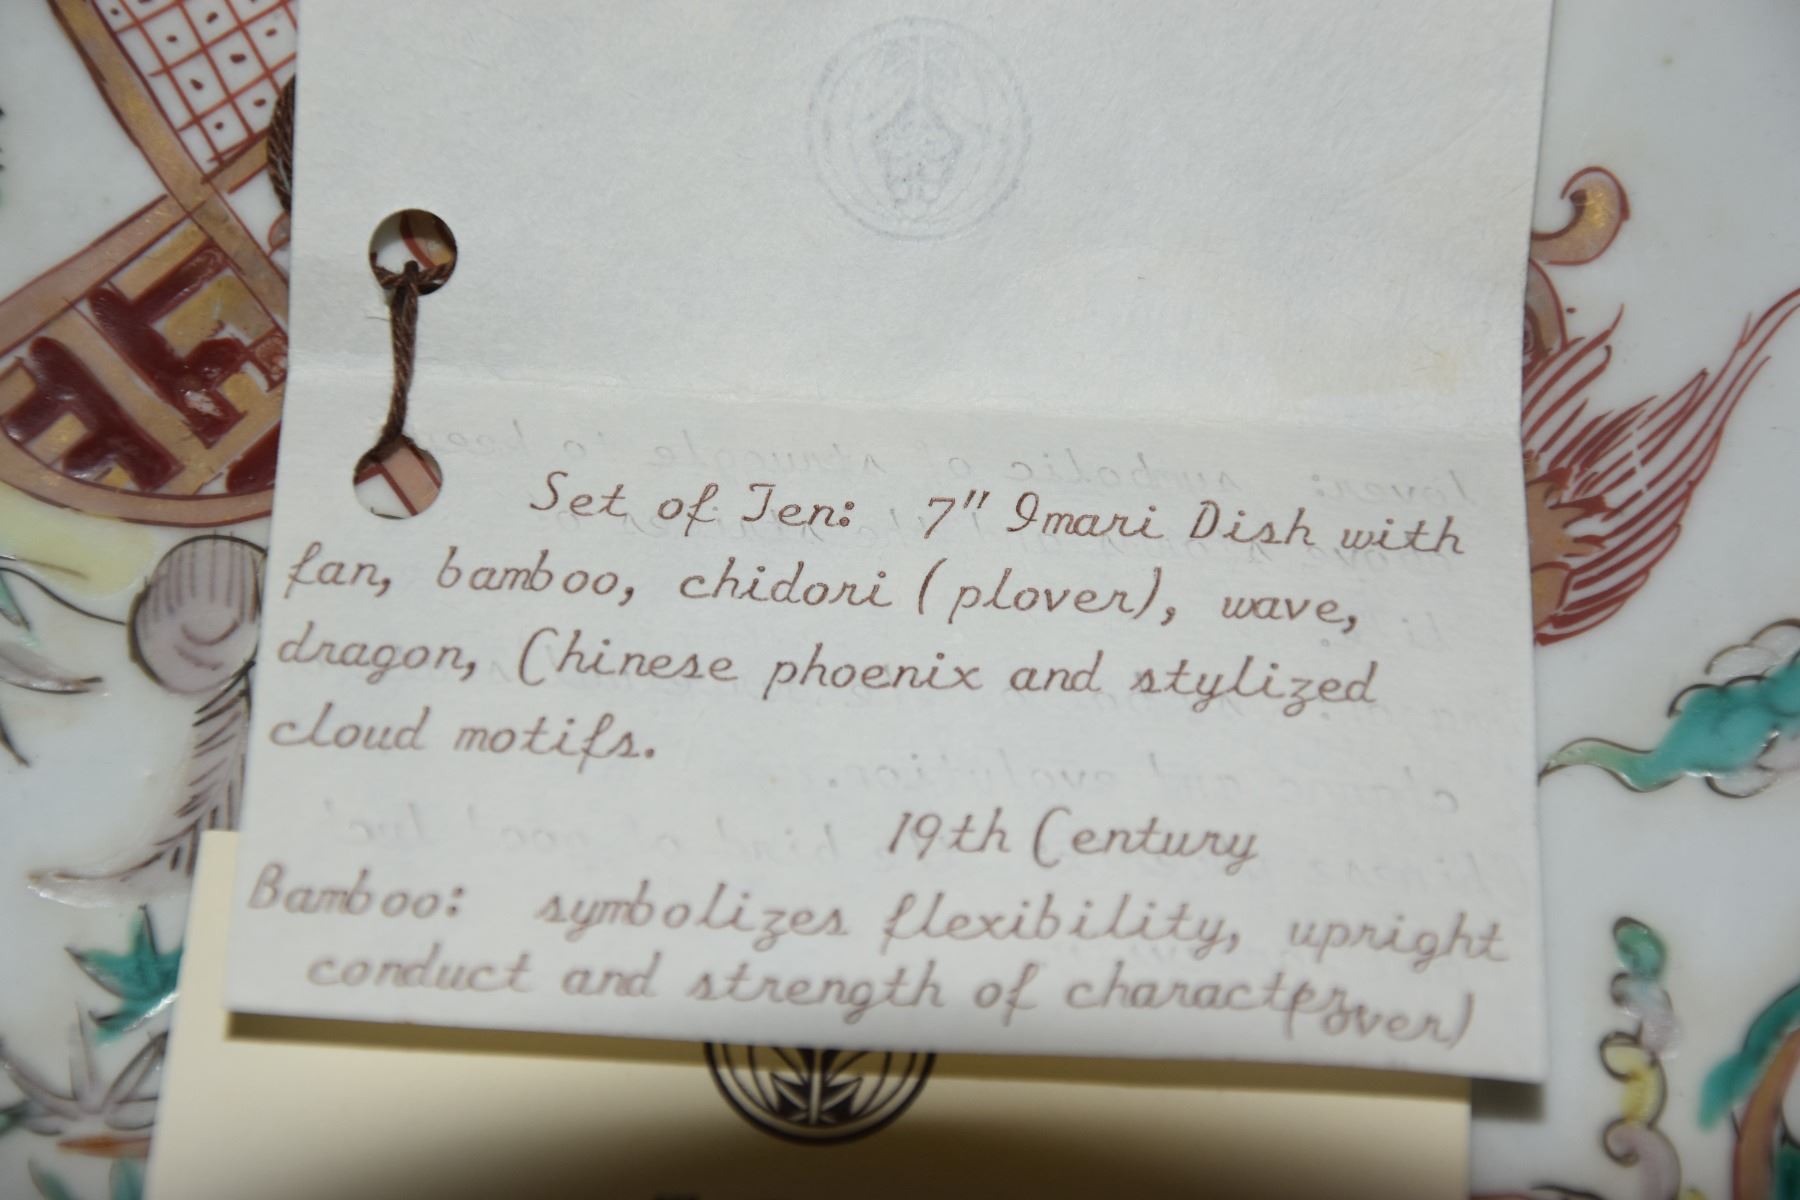 Set of Ten: 7" Imari Dish with
fan, bamboo, chidori (plover), wave,
dragon, Chinese phoenix and stylized
cloud motifs.
19th Century
Bamboo: symbolizes flexibility, upright
conduct and strength of character
(over)